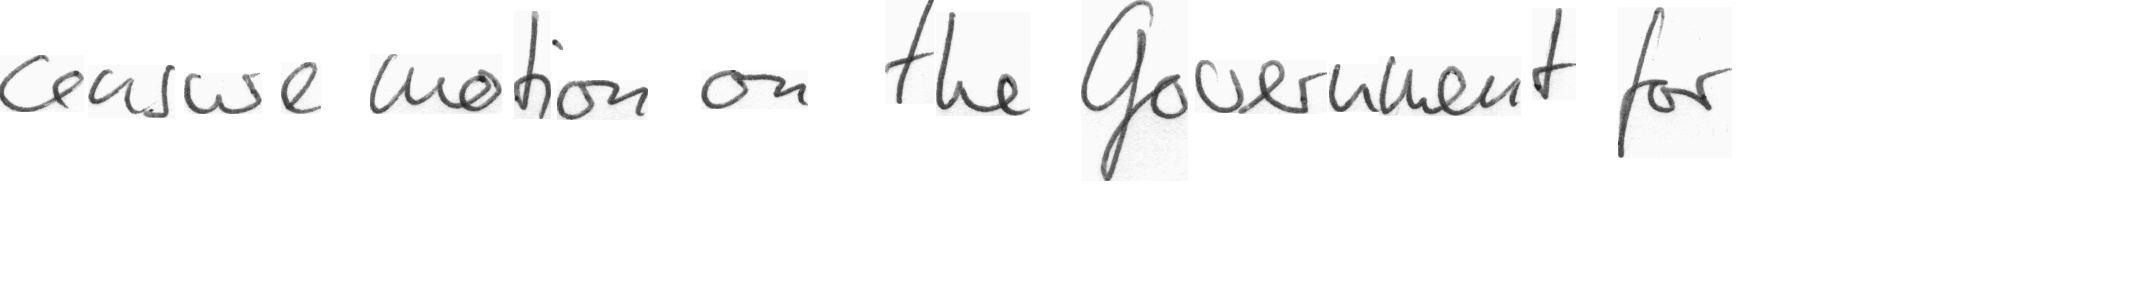 censure motion on the Government for